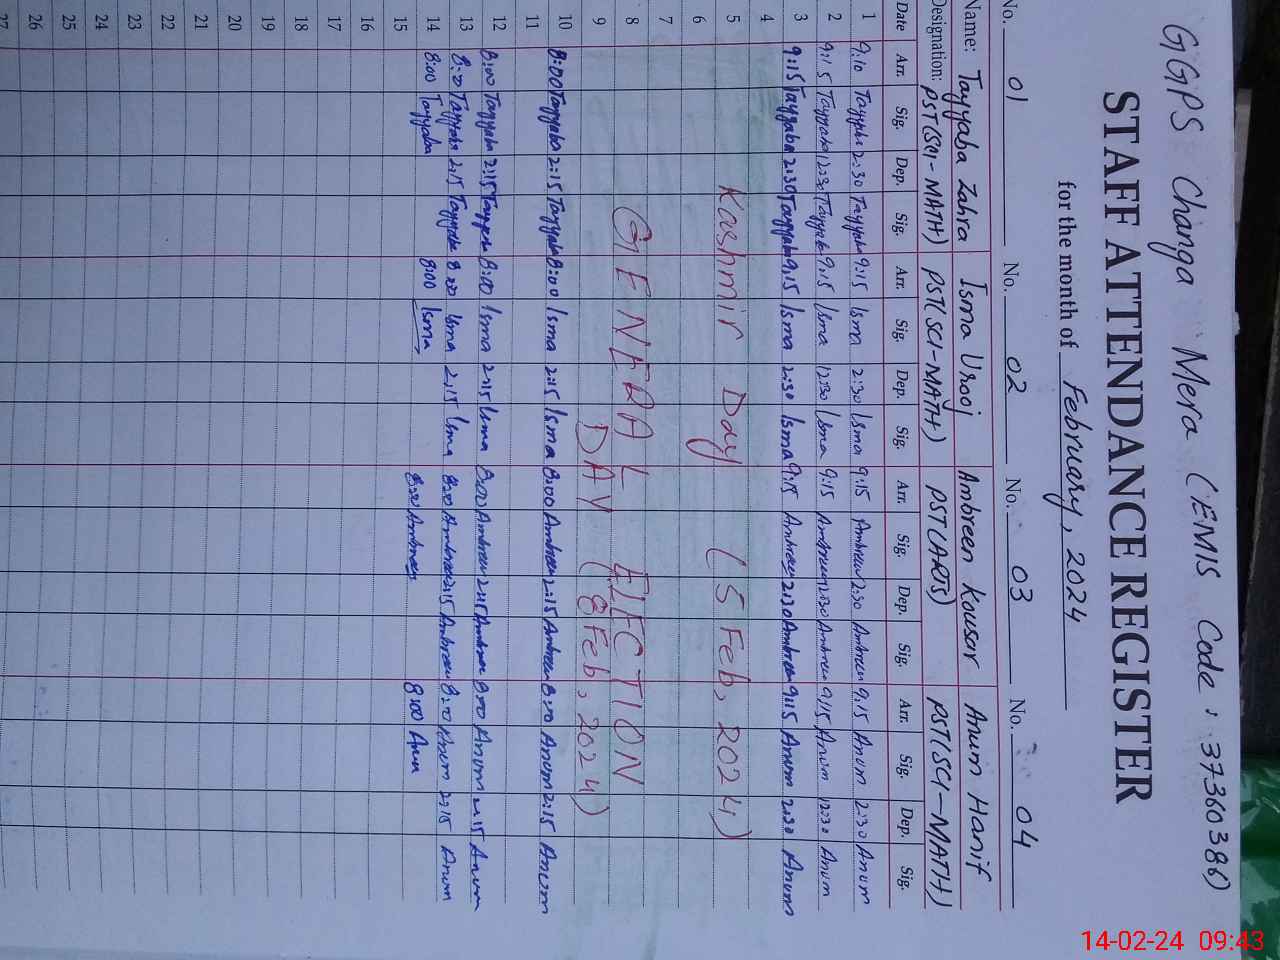 GGPS Changa Mera (EMIS Code: 37360386)
STAFF ATTENDANCE REGISTER
for the month of February, 2024
No. 01 No. 02 No. 03 No. 04
Name: Tayyaba Zahra Isma Urooj Ambreen Kousar Anum Hanif
Designation: PST(SCI-MATH) PST(SCI-MATH) PST(ARTS) PST(SCI-MATH)
Date Arr. Sig. Dep. Sig. Arr. Sig. Dep. Sig. Arr. Sig. Dep. Sig. Arr. Sig. Dep. Sig.
1 9:10 Tayyaba 2:30 Tayyaba 9:15 Isma 2:30 Isma 9:15 Ambreen 2:30 Ambreen 9:15 Anum 2:30 Anum
2 9:15 Tayyaba 12:30 Tayyaba 9:15 Isma 12:30 Isma 9:15 Ambreen 12:30 Ambreen 9:15 Anum 12:30 Anum
3 9:15 Tayyaba 2:30 Tayyaba 9:15 Isma 2:30 Isma 9:15 Ambreen 2:30 Ambreen 9:15 Anum 2:30 Anum
4
5 Kashmir Day (5 Feb, 2024)
6
7
8 GENERAL ELECTION
9 DAY (8 Feb, 2024)
10 8:00 Tayyaba 2:15 Tayyaba 8:00 Isma 2:15 Isma 8:00 Ambreen 2:15 Ambreen 8:00 Anum 2:15 Anum
11
12 8:00 Tayyaba 2:15 Tayyaba 8:00 Isma 2:15 Isma 8:00 Ambreen 2:15 Ambreen 8:00 Anum 2:15 Anum
13 8:00 Tayyaba 2:15 Tayyaba 8:00 Isma 2:15 Isma 8:00 Ambreen 2:15 Ambreen 8:00 Anum 2:15 Anum
14 8:00 Tayyaba 8:00 Isma 8:00 Ambreen 8:00 Anum
15
16
17
18
19
20
21
22
23
24
25
26
27
14-02-24 09:43